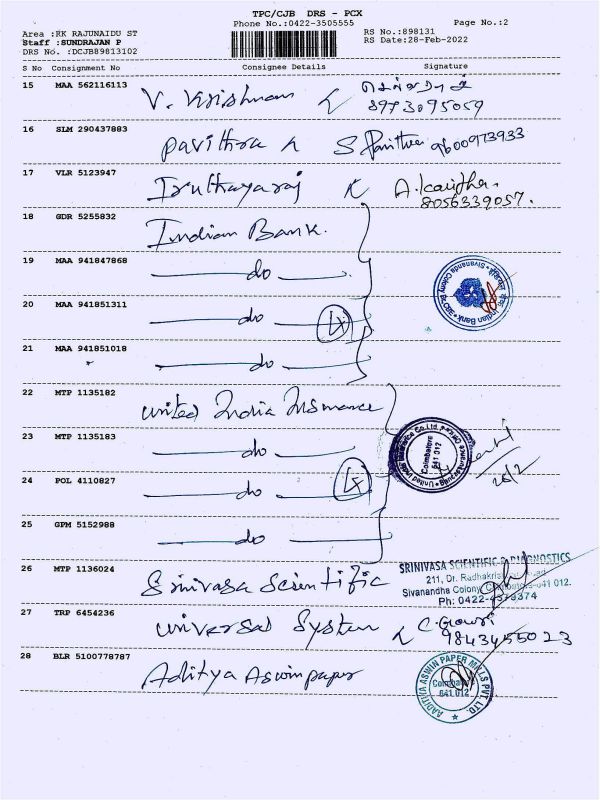 TPC/CJB DRS - PCX
Phone No.:0422-3505555
Page No.:2
Area :RK RAJUNAIDU ST
RS No.:898131
Staff :SUNDRAJAN P
RS Date:28-Feb-2022
DRS No. :DCJB89813102
S No Consignment No Consignee Details Signature
15 MAA 562116113 V. Krishnan
8973095059
16 SLM 290437883 Pavithra S Pavithra 9600973933
17 VLR 5123947 Iruthayaraj A. Kavitha.
8056339057.
18 GDR 5255832 Indian Bank.
19 MAA 941847868 do
Indian Bank Sivananda Colony
20 MAA 941851311 do 4
21 MAA 941851018 do
22 MTP 1135182 United India Insurance
23 MTP 1135183 do
Coimbatore
641 012
26/2
24 POL 4110827 do 4
25 GPM 5152988 do
26 MTP 1136024 Srinivasa Scientific
SRINIVASA SCIENTIFIC & DIAGNOSTICS
211, Dr. Radhakrishnan Road
Sivanandha Colony, Coimbatore-641 012.
Ph: 0422-4378374
27 TRP 6454236 Universal System C. Gowri
9843455023
28 BLR 5100778787 Aditya Aswin paper
AADITYA ASWIN PAPER MILLS PVT. LTD.
Coimbatore
641 012